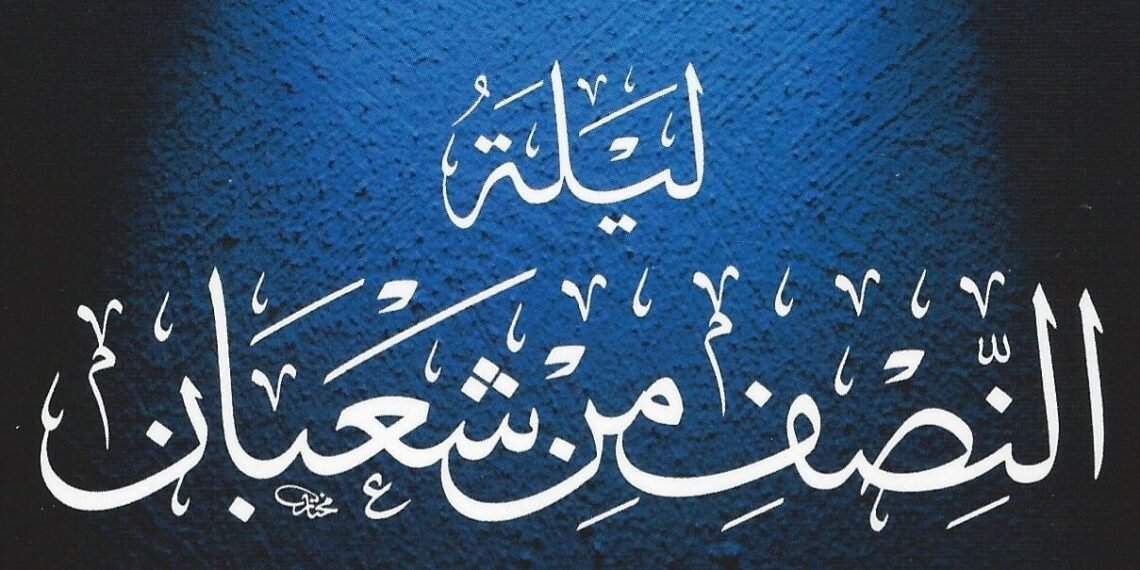 لَيْلَةُ
النِّصْفِ مِنْ شَعْبَان
مختار